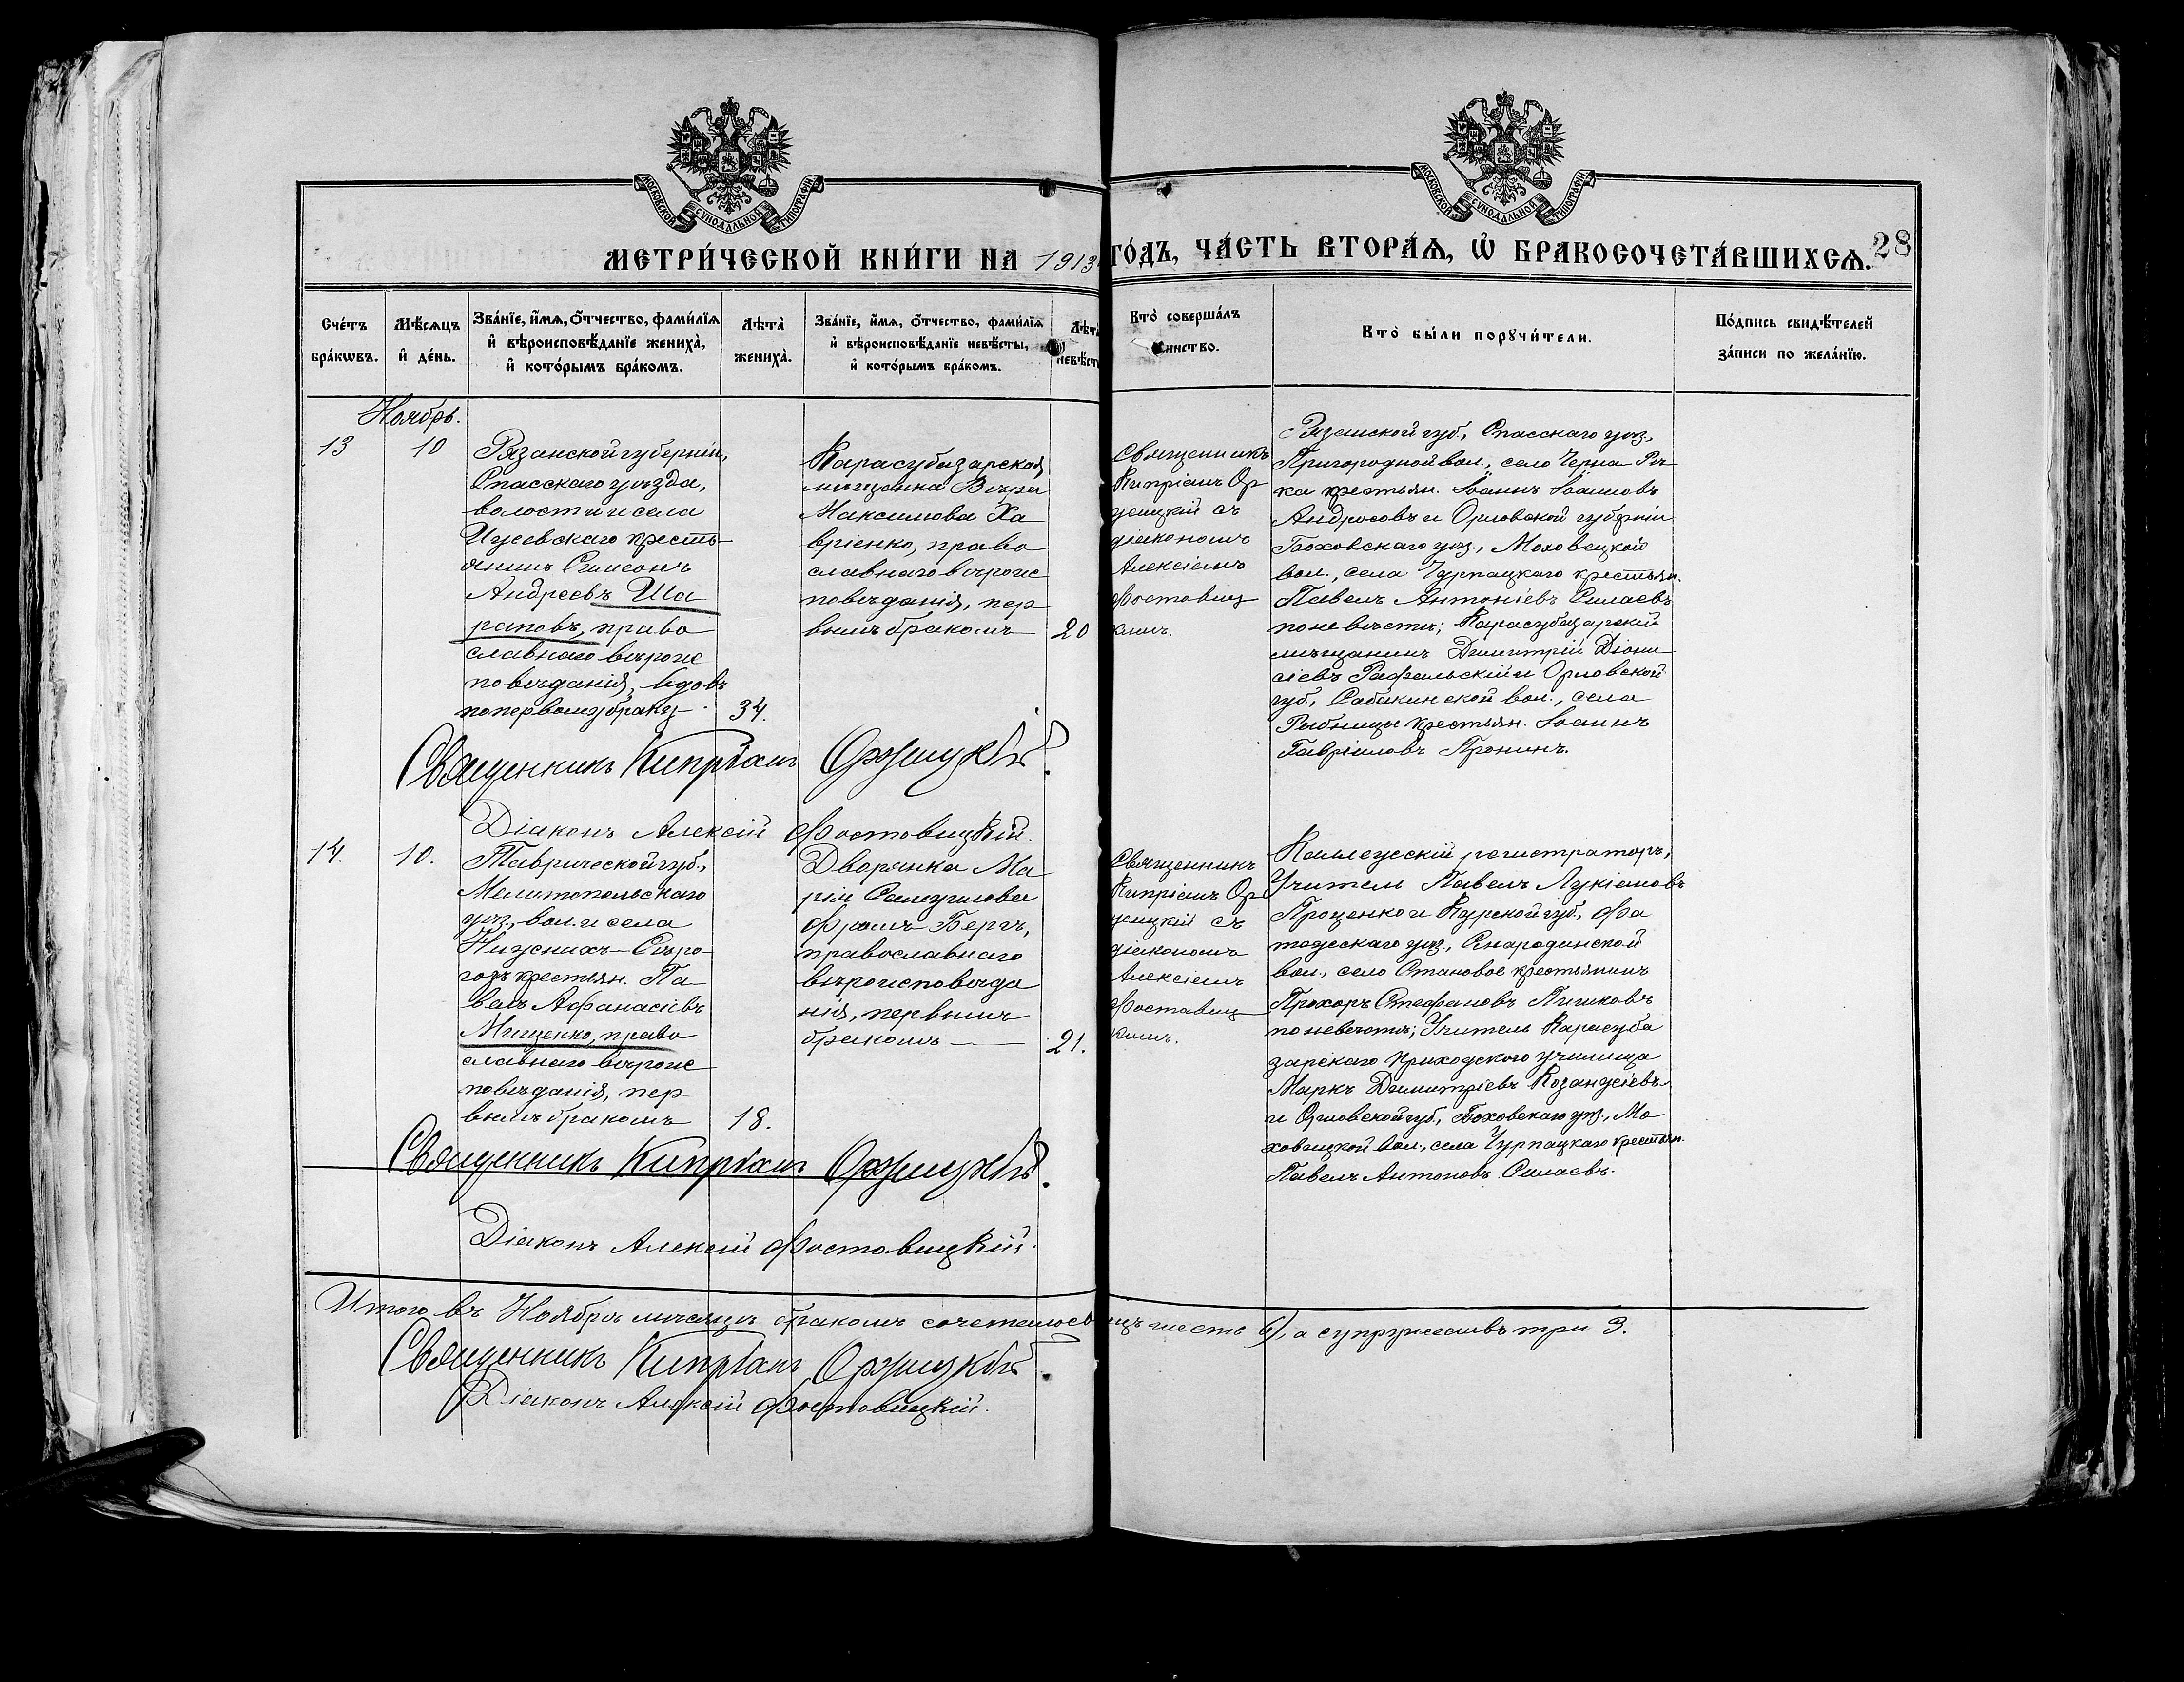 МОСКОВСКОЙ СѴНОДАЛЬНОЙ ТИПОГРАФІИ
МОСКОВСКОЙ СѴНОДАЛЬНОЙ ТИПОГРАФІИ
МЕТРИ́ЧЕСКОЙ КНИ́ГИ НА 1913 ГО́ДЪ, ЧА́СТЬ ВТОРА́Ѧ, Ѽ БРАКОСОЧЕТА́ВШИХСѦ. 28
Сче́тъ бра́кѡвъ.
Мѣ́сяцъ и҆ де́нь.
Зва́нїе, и҆́мѧ, ѻ҆́тчество, фами́лїѧ
и҆ вѣроисповѣ́данїе жениха̀,
и҆ кото́рымъ бра́комъ.
Лѣта̀ жениха̀.
Зва́нїе, и҆́мѧ, ѻ҆́тчество, фами́лїѧ
и҆ вѣроисповѣ́данїе невѣ́сты,
и҆ кото́рымъ бра́комъ.
Лѣта̀ невѣ́сты
Кто̀ соверша́лъ
таинство.
Кто̀ бы́ли порꙋчи́тели.
По́дпись свидѣ́телей
за́писи по жела́нїю.
Ноябрь.
13
10
Рязанской губерніи,
Спасскаго уѣзда,
волости и села
Ижевскаго кресть-
янинъ Симеонъ
Андреевъ Ша
раповъ, право
славнаго вѣроис
повѣданія, вдовъ
по первому браку
34.
Карасубазарская
мѣщанка Вѣра
Максимова Ха
вріенко, право
славнаго вѣроис
повѣданія, пер
вымъ бракомъ
20
Священникъ
Кипріанъ Ор
жицкій съ
діакономъ
Алексіемъ
Фостовиц
кимъ.
Рязанской губ., Спасскаго уѣз.,
Пригородной вол., село Черна Рѣ
ка крестьян. Іоаннъ Іоанновъ
Андросовъ и Орловской губерніи
Болховскаго уѣз., Моховецкой
вол., села Чурпацкаго крестьян.
Павелъ Антоніевъ Силаевъ
по невѣстѣ; Карасубазарскій
мѣщанинъ Димитрій Діони
сіевъ Рафальскій и Орловской
губ., Сабакинской вол., села
Рыбницы крестьян. Іоаннъ
Гавріиловъ Пронинъ.
Священникъ Кипріанъ Оржицкій.
Діаконъ Алексій Фостовицкій.
14.
10.
Таврической губ.,
Мелитопольскаго
уѣз., вол. и села
Нижнихъ-Сѣро-
гозъ крестьян. Па
велъ Афанасіевъ
Мищенко, право
славнаго вѣроис
повѣданія, пер
вымъ бракомъ
18.
Дворянка Ма
рія Самуилова
Фромъ-Бергъ,
православнаго
вѣроисповѣда
нія, первымъ
бракомъ
21.
Священникъ
Кипріанъ Ор
жицкій съ
діакономъ
Алексіемъ
Фостовиц
кимъ.
Коллежскій регистраторъ,
Учитель Павелъ Лукіановъ
Проценко и Курской губ., Фа
тежскаго уѣз., Смародинской
вол., село Становое крестьянинъ
Прохоръ Стефановъ Пичиковъ
по невѣстѣ; Учитель Карасуба
зарскаго приходского училища
Маркъ Димитріевъ Козанджіевъ
и Орловской губ., Болховскаго уѣз., Мо
ховицкой вол., села Чурпацкаго крестьян.
Павелъ Антоновъ Силаевъ.
Священникъ Кипріанъ Оржицкій.
Діаконъ Алексій Фостовицкій.
Итого въ Ноябрѣ мѣсяцѣ бракомъ сочеталось лицъ шесть 6), а супружествъ три 3.
Священникъ Кипріанъ Оржицкій.
Діаконъ Алексій Фостовицкій.